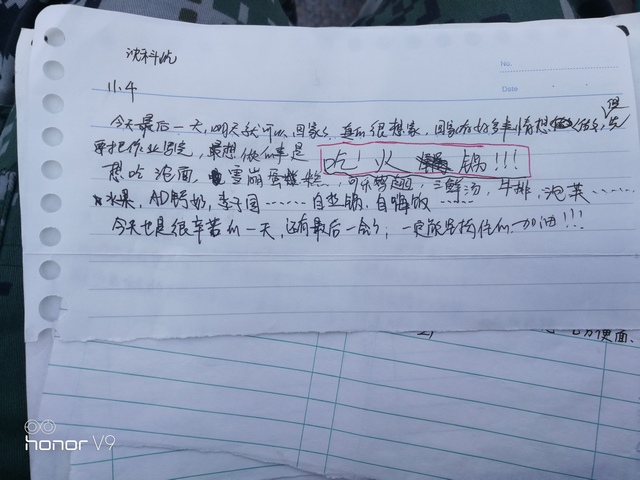 沈科屹
No.
Date
11.4
今天最后一天,明天就可以回家了,真的很想家,回家有好多事情想做,但先
要把作业写完,最想做的事是吃!火锅!!!
想吃泡面,雪崩蛋糕,可乐鸡翅,三鲜汤,牛排,泡芙……
水果,AD钙奶,李子园……自热锅,自嗨饭……
今天也是很辛苦的一天,还有最后一会了,一定能坚持住的,加油!!!
方便面、
honor V9